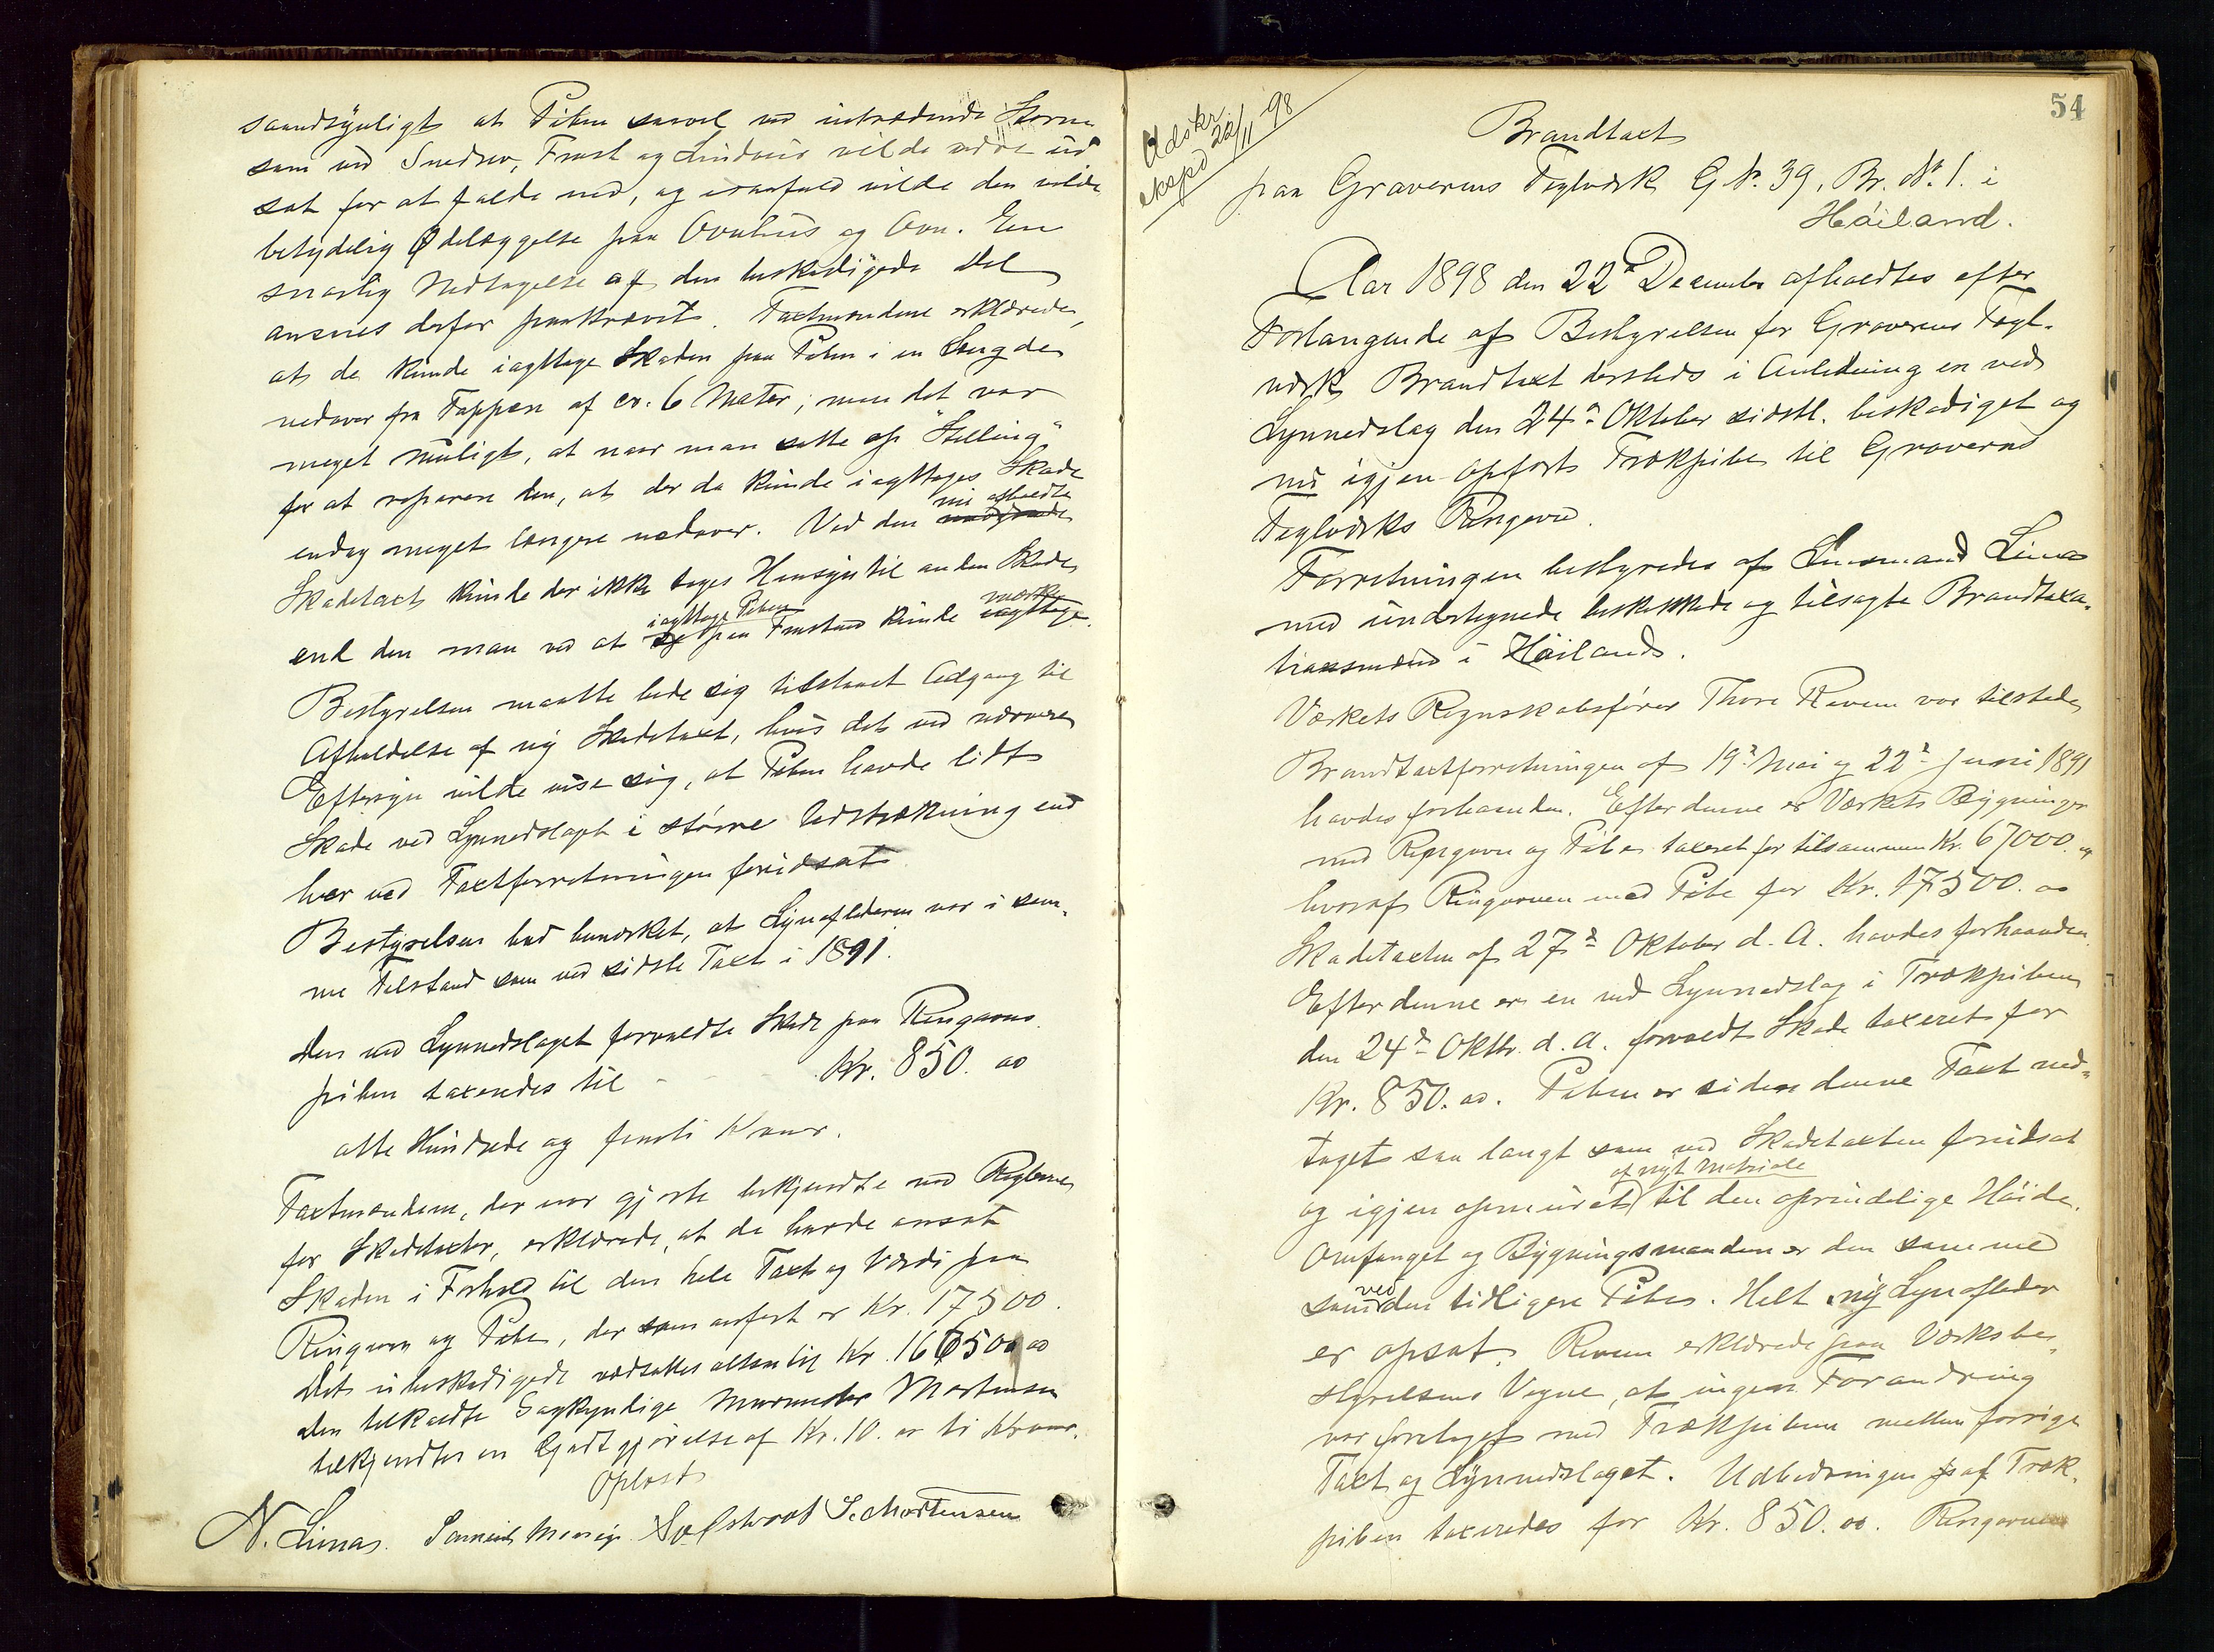 sandsynligt at Piben saavel ved indtrædende Storm
som ved Snedrev, Frost og Lindveir vilde være ud
sat for at falde ned, og isaafald vilde den volde
betydelig Ødelæggelse paa Ovnhus og Ovn. En
snarlig Nedtagelse af den beskadigede Del
ansees derfor paakrævet. Taxtmændene erklærede,
at de kunde iagttage Skaden paa Piben i en Længde
nedover fra Toppen af ca. 6 Meter; men det var
meget muligt, at naar man satte op "Stelling"
for at reparere den, at der da kunde iagttages Skade
endog meget længere nedover. Ved den nu afholdte
Skadetaxt kunde der ikke tages Hensyn til anden Skade
end den man ved at iagttage Piben paa Frastand kunde mærke.
Bestyrelsen maatte bede sig tilstaaet Adgang til
Afholdelse af ny Skadetaxt, hvis det ved nærmere
Eftersyn vilde vise sig, at Piben havde lidt
Skade ved Lynnedslaget i større Udstrækning end
her ved Taxtforretningen forudsat.
Bestyrelsen bad bemærket, at Lynaflederen var i sam-
me Tilstand som ved sidste Taxt i 1891.
Den ved Lynnedslaget forvoldte Skade paa Ringovns
piben taxeredes til - - - Kr. 850. 00
otte Hundrede og femti Kroner.
Taxtmændene, der var gjorte bekjendte med Reglerne
for Skadetaxter, erklærede, at de havde ansat
Skaden i Forhold til den hele Taxt og Værdi paa
Ringovn og Pibe, der som anført er Kr. 17500.
Det ubeskadigede værdsattes altsaa til Kr. 16650,00
Den tilkaldte Sagkyndige Murmester Mortensen
tilkjendtes en Godtgjørelse af Kr. 10. er ti Kroner.
Oplæst
N. Lima. S. Mortensen
54
Udskr.
exspd 22/11 98
Brandtaxt
paa Graverens Teglværk G.No. 39, Br. No. 1. i
Høiland.
Aar 1898 den 22de December afholdtes efter
Forlangende af Bestyrelsen for Graverens Tegl-
værk Brandtaxt dersteds i Anledning en ved
Lynnedslag den 24de Oktober sidstl. beskadiget og
nu igjen opført Trækpibe til Graverens
Teglværks Ringovn.
Forretningen bestyredes af Lensmand Lima
med undertegnede beskikkede og tilsagte Brandtaxa-
tionsmænd i Høiland.
Værkets Regnskabsfører Thore Reven var tilstede
Brandtaxtforretningen af 19de Mai og 22de Juni 1891
havdes forhaanden. Efter denne er Værkets Bygninger
med Ringovn og Pibe taxeret for tilsammen Kr. 67000. 00
hvoraf Ringovnen med Pibe for Kr. 17500. 00
Skadetaxten af 27de Oktober d. A. havdes forhaanden.
Efter denne er en ved Lynnedslag i Trækpiben
den 24de Oktbr. d. A. forvoldt Skade taxeret for
Kr. 850. 00. Piben er siden denne Taxt ned-
taget saa langt som ved Skadetaxten forudsat
og igjen opmuret af nyt Materiale til den oprindelige Høide.
Omfanget og Bygningsmaaden er den samme
som ved den tidligere Pibe. Helt ny Lynafleder
er opsat. Reven erklærede paa Værksbe-
styrelsens Vegne, at ingen Forandring
var foretaget med Trækpiben mellem forrige
Taxt og Lynnedslaget. Udbedringen af Træk-
piben taxeredes for Kr. 850. 00. Ringovnen